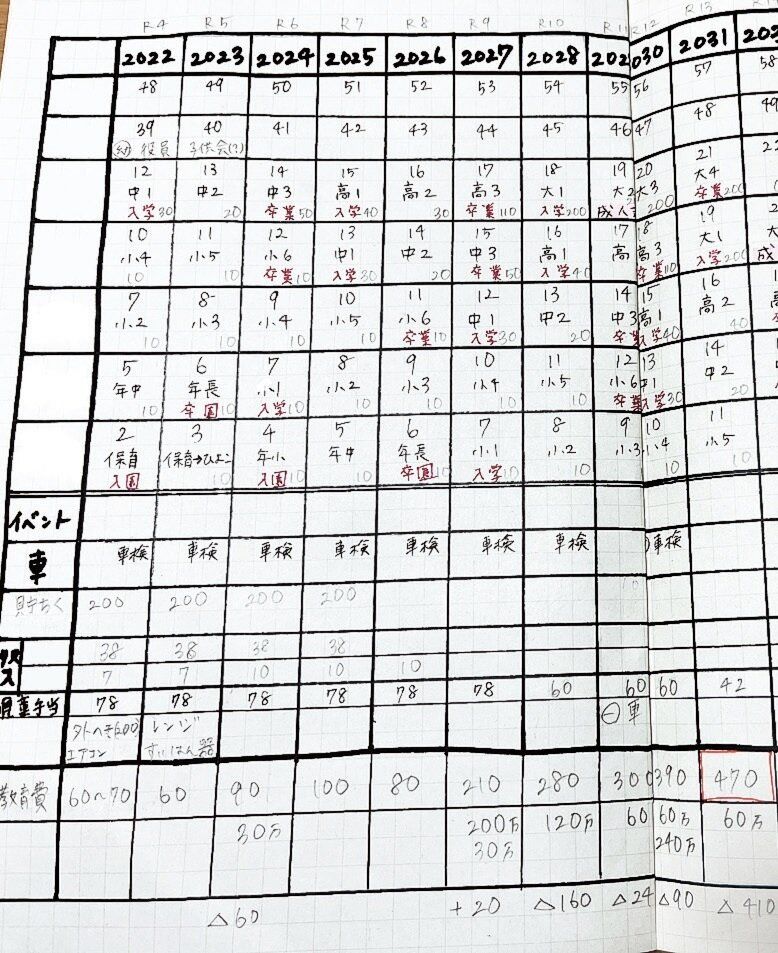 R4 R5 R6 R7 R8 R9 R10 R11 R12 R13
2022 2023 2024 2025 2026 2027 2028 202 030 2031
48 49 50 51 52 53 54 55 56 57 58
39 40 41 42 43 44 45 46 47 48 49
役員 子供会(?)
12 13 14 15 16 17 18 19 20 21 22
中1 中2 中3 高1 高2 高3 大1 大2 大3 大4
入学30 20 卒業50 入学40 30 卒業110 入学200 成人 200 卒業200
10 11 12 13 14 15 16 17 18 19
小4 小5 小6 中1 中2 中3 高1 高 高3 大1
10 10 卒業10 入学30 20 卒業50 入学40 卒業110 入学200 成
7 8 9 10 11 12 13 14 15 16
小2 小3 小4 小5 小6 中1 中2 中3 高1 高2
10 10 10 10 卒業10 入学30 20 卒業 入学40 40
5 6 7 8 9 10 11 12 13 14
年中 年長 小1 小2 小3 小4 小5 小6 中1 中2
10 卒園10 入学10 10 10 10 10 卒業 入学30 20
2 3 4 5 6 7 8 9 10 11
保育 保育→ひよこ 年小 年中 年長 小1 小2 小3 小4 小5
入園 10 入園10 10 卒園10 入学10 10 10 10
イベント
車 車検 車検 車検 車検 車検 車検 車検 車検
貯ちく 200 200 200 200
38 38 38 38
ス 7 7 10 10 10
児童手当 78 78 78 78 78 78 60 60 60 42
㊀車
外へき(200) レンジ
エアコン すいはん器
教育費 60~70 60 90 100 80 210 280 300 390 470
30万 200万 120万 60 60万 60万
30万 240万
△60 +20 △160 △24 △90 △410